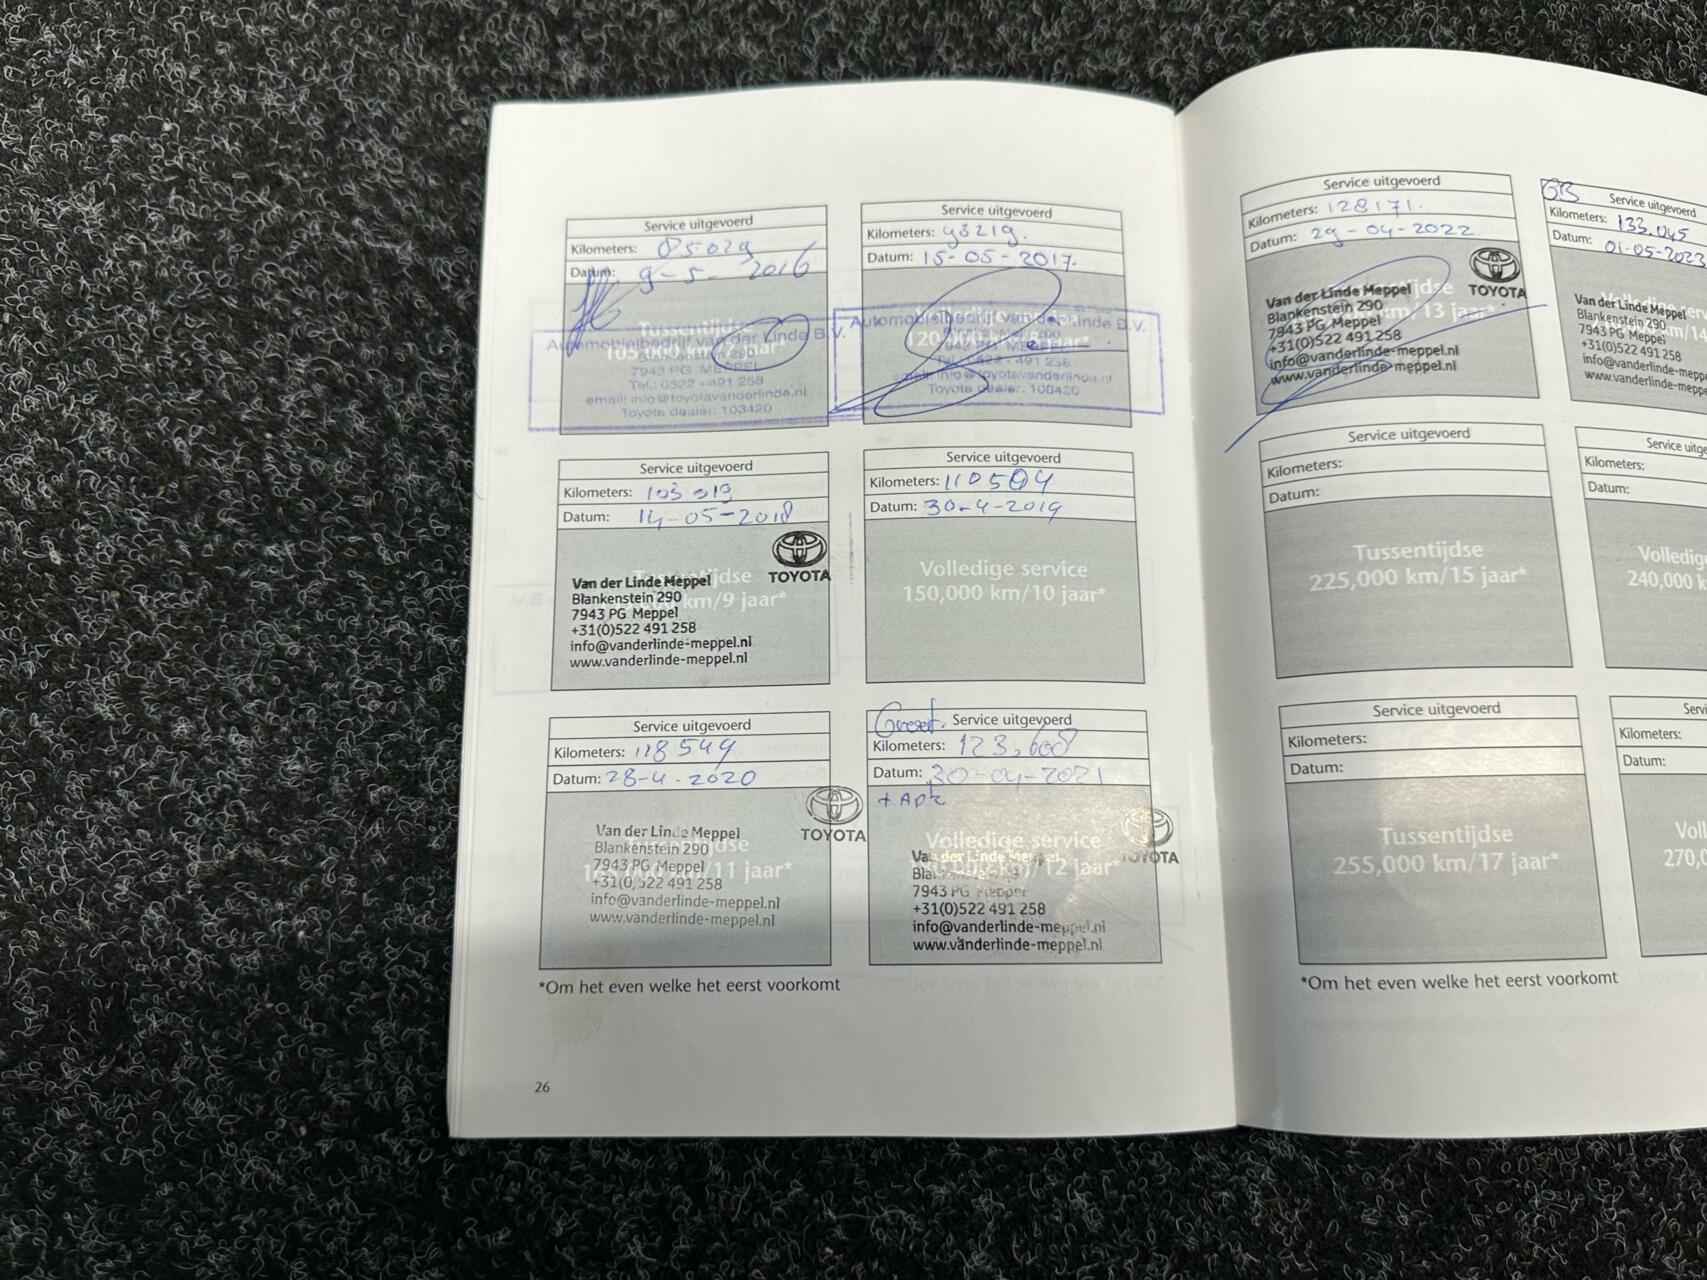 Service uitgevoerd
Kilometers: 85029
Datum: 9-5-2016
Tussentijdse
105,000 km/7 jaar*
Automobielbedrijf van der Linde B.V.
7943 PG MEPPEL
Tel.: 0522 - 491 258
email: info@toyotavanderlinde.nl
Toyota dealer: 103420
Service uitgevoerd
Kilometers: 93219.
Datum: 15-05-2017.
Automobielbedrijf van der Linde B.V.
7943 PG MEPPEL
Tel.: 0522 - 491 258
email: info@toyotavanderlinde.nl
Toyota dealer: 103420
Service uitgevoerd
Kilometers: 103 013
Datum: 14-05-2018
TOYOTA
Van der Linde Meppel
Blankenstein 290
km/9 jaar*
7943 PG Meppel
+31(0)522 491 258
info@vanderlinde-meppel.nl
www.vanderlinde-meppel.nl
Service uitgevoerd
Kilometers: 110504
Datum: 30-4-2019
Volledige service
150,000 km/10 jaar*
Service uitgevoerd
Kilometers: 118549
Datum: 28-4-2020
TOYOTA
Van der Linde Meppel
Blankenstein 290
7943 PG Meppel
km/11 jaar*
+31(0)522 491 258
info@vanderlinde-meppel.nl
www.vanderlinde-meppel.nl
Groot. Service uitgevoerd
Kilometers: 123,608
Datum: 30-04-2021
+ APK
TOYOTA
Volledige service
Van der Linde Meppel
km/12 jaar*
7943 PG Meppel
+31(0)522 491 258
info@vanderlinde-meppel.nl
www.vanderlinde-meppel.nl
*Om het even welke het eerst voorkomt
26
Service uitgevoerd
Kilometers: 128171.
Datum: 29-04-2022
TOYOTA
Van der Linde Meppel
Blankenstein 290
km/13 jaar*
7943 PG Meppel
+31(0)522 491 258
info@vanderlinde-meppel.nl
www.vanderlinde-meppel.nl
GB Service uitgevoerd
Kilometers: 133.045
Datum: 01-05-2023
Van der Linde Meppel
Blankenstein 290
7943 PG Meppel
+31(0)522 491 258
info@vanderlinde-mepp
www.vanderlinde-mepp
Service uitgevoerd
Kilometers:
Datum:
Tussentijdse
225,000 km/15 jaar*
Service uitg
Kilometers:
Datum:
Volledig
240,000
Service uitgevoerd
Kilometers:
Datum:
Tussentijdse
255,000 km/17 jaar*
Servi
Kilometers:
Datum:
Voll
270,0
*Om het even welke het eerst voorkomt